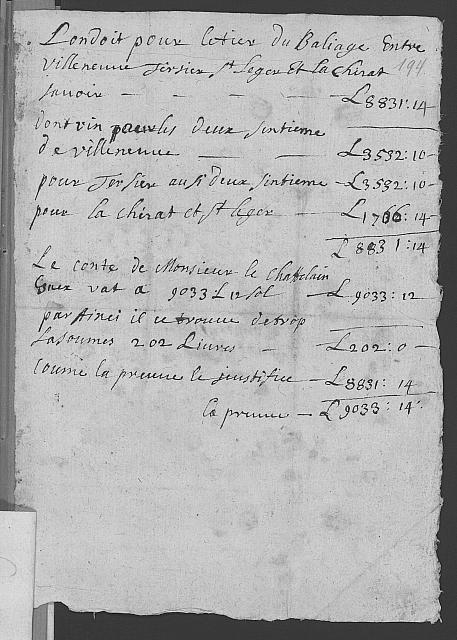 Londoit pour letier du Baliage Entre
villeneuve Tersier, st leger et la chirat 194
savoir - - - - L 8831:14
dont vin pour les deux sintieme
de villeneuve - - L 3532:10
pour Tersier ausi deux sintieme - L 3532:10
pour la chirat et st leger - L 1766:14
L 8831:14
Le conte de Monsieur le Chattelain
vat a 9033 L 12 sol - L 9033:12
par Ainci il ce trouve detrop
la soumes 202 Livres - L 202:0
coume la preuve le jeustifice - L 8831:14
la preuve - L 9033:14